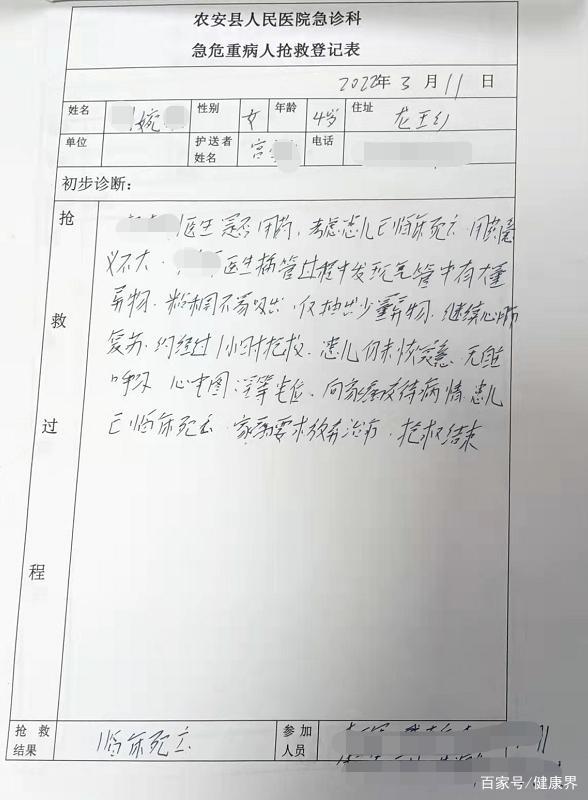 农安县人民医院急诊科
急危重病人抢救登记表
2022年3月11日
姓名 婉 性别 女 年龄 4岁 住址 龙王乡
单位 护送者姓名 宫 电话
初步诊断:
抢救过程
医生是否用药,考虑患儿已临床死亡,用药意
义不大. 医生插管过程中发现气管中有大量
异物,粘稠不易吸出,仅抽出少量异物.继续心肺
复苏,约经过1小时抢救,患儿仍未恢复意识,无自主
呼吸,心电图:呈等电位,向家属交待病情,患儿
已临床死亡,家属要求放弃治疗,抢救结束
抢救结果 临床死亡 参加人员
百家号/健康界